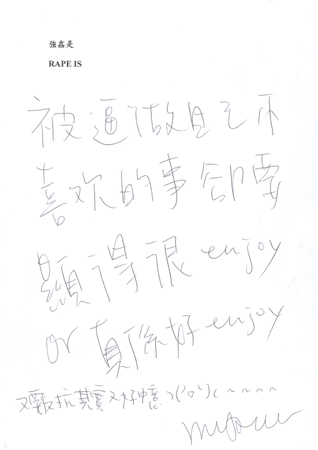 強姦是
RAPE IS
被逼做自己不
喜欢的事卻要
顯得很 enjoy
or 真係好 enjoy
又要反抗其實又好中意